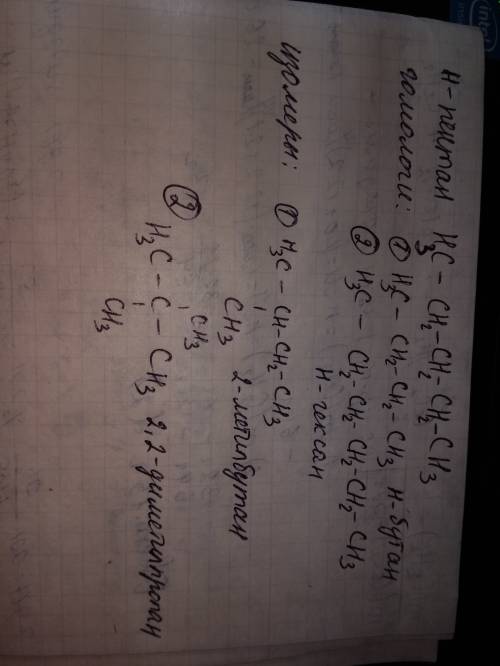 н-пентан H₃C – CH₂–CH₂–CH₂–CH₃
гомологи: ① H₃C – CH₂–CH₂–CH₃ н-бутан
② H₃C – CH₂–CH₂–CH₂–CH₂–CH₃
н-гексан
изомеры: ① H₃C – CH–CH₂–CH₃
CH₃ 2-метилбутан
CH₃
② H₃C – C – CH₃ 2,2-диметилпропан
CH₃